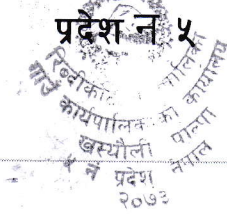 प्रदेश नं. ५
रिब्दीकोट गाउँपालिका
गाउँ कार्यपालिकाको कार्यालय
खस्यौली पाल्पा
५ नं प्रदेश नेपाल
२०७३